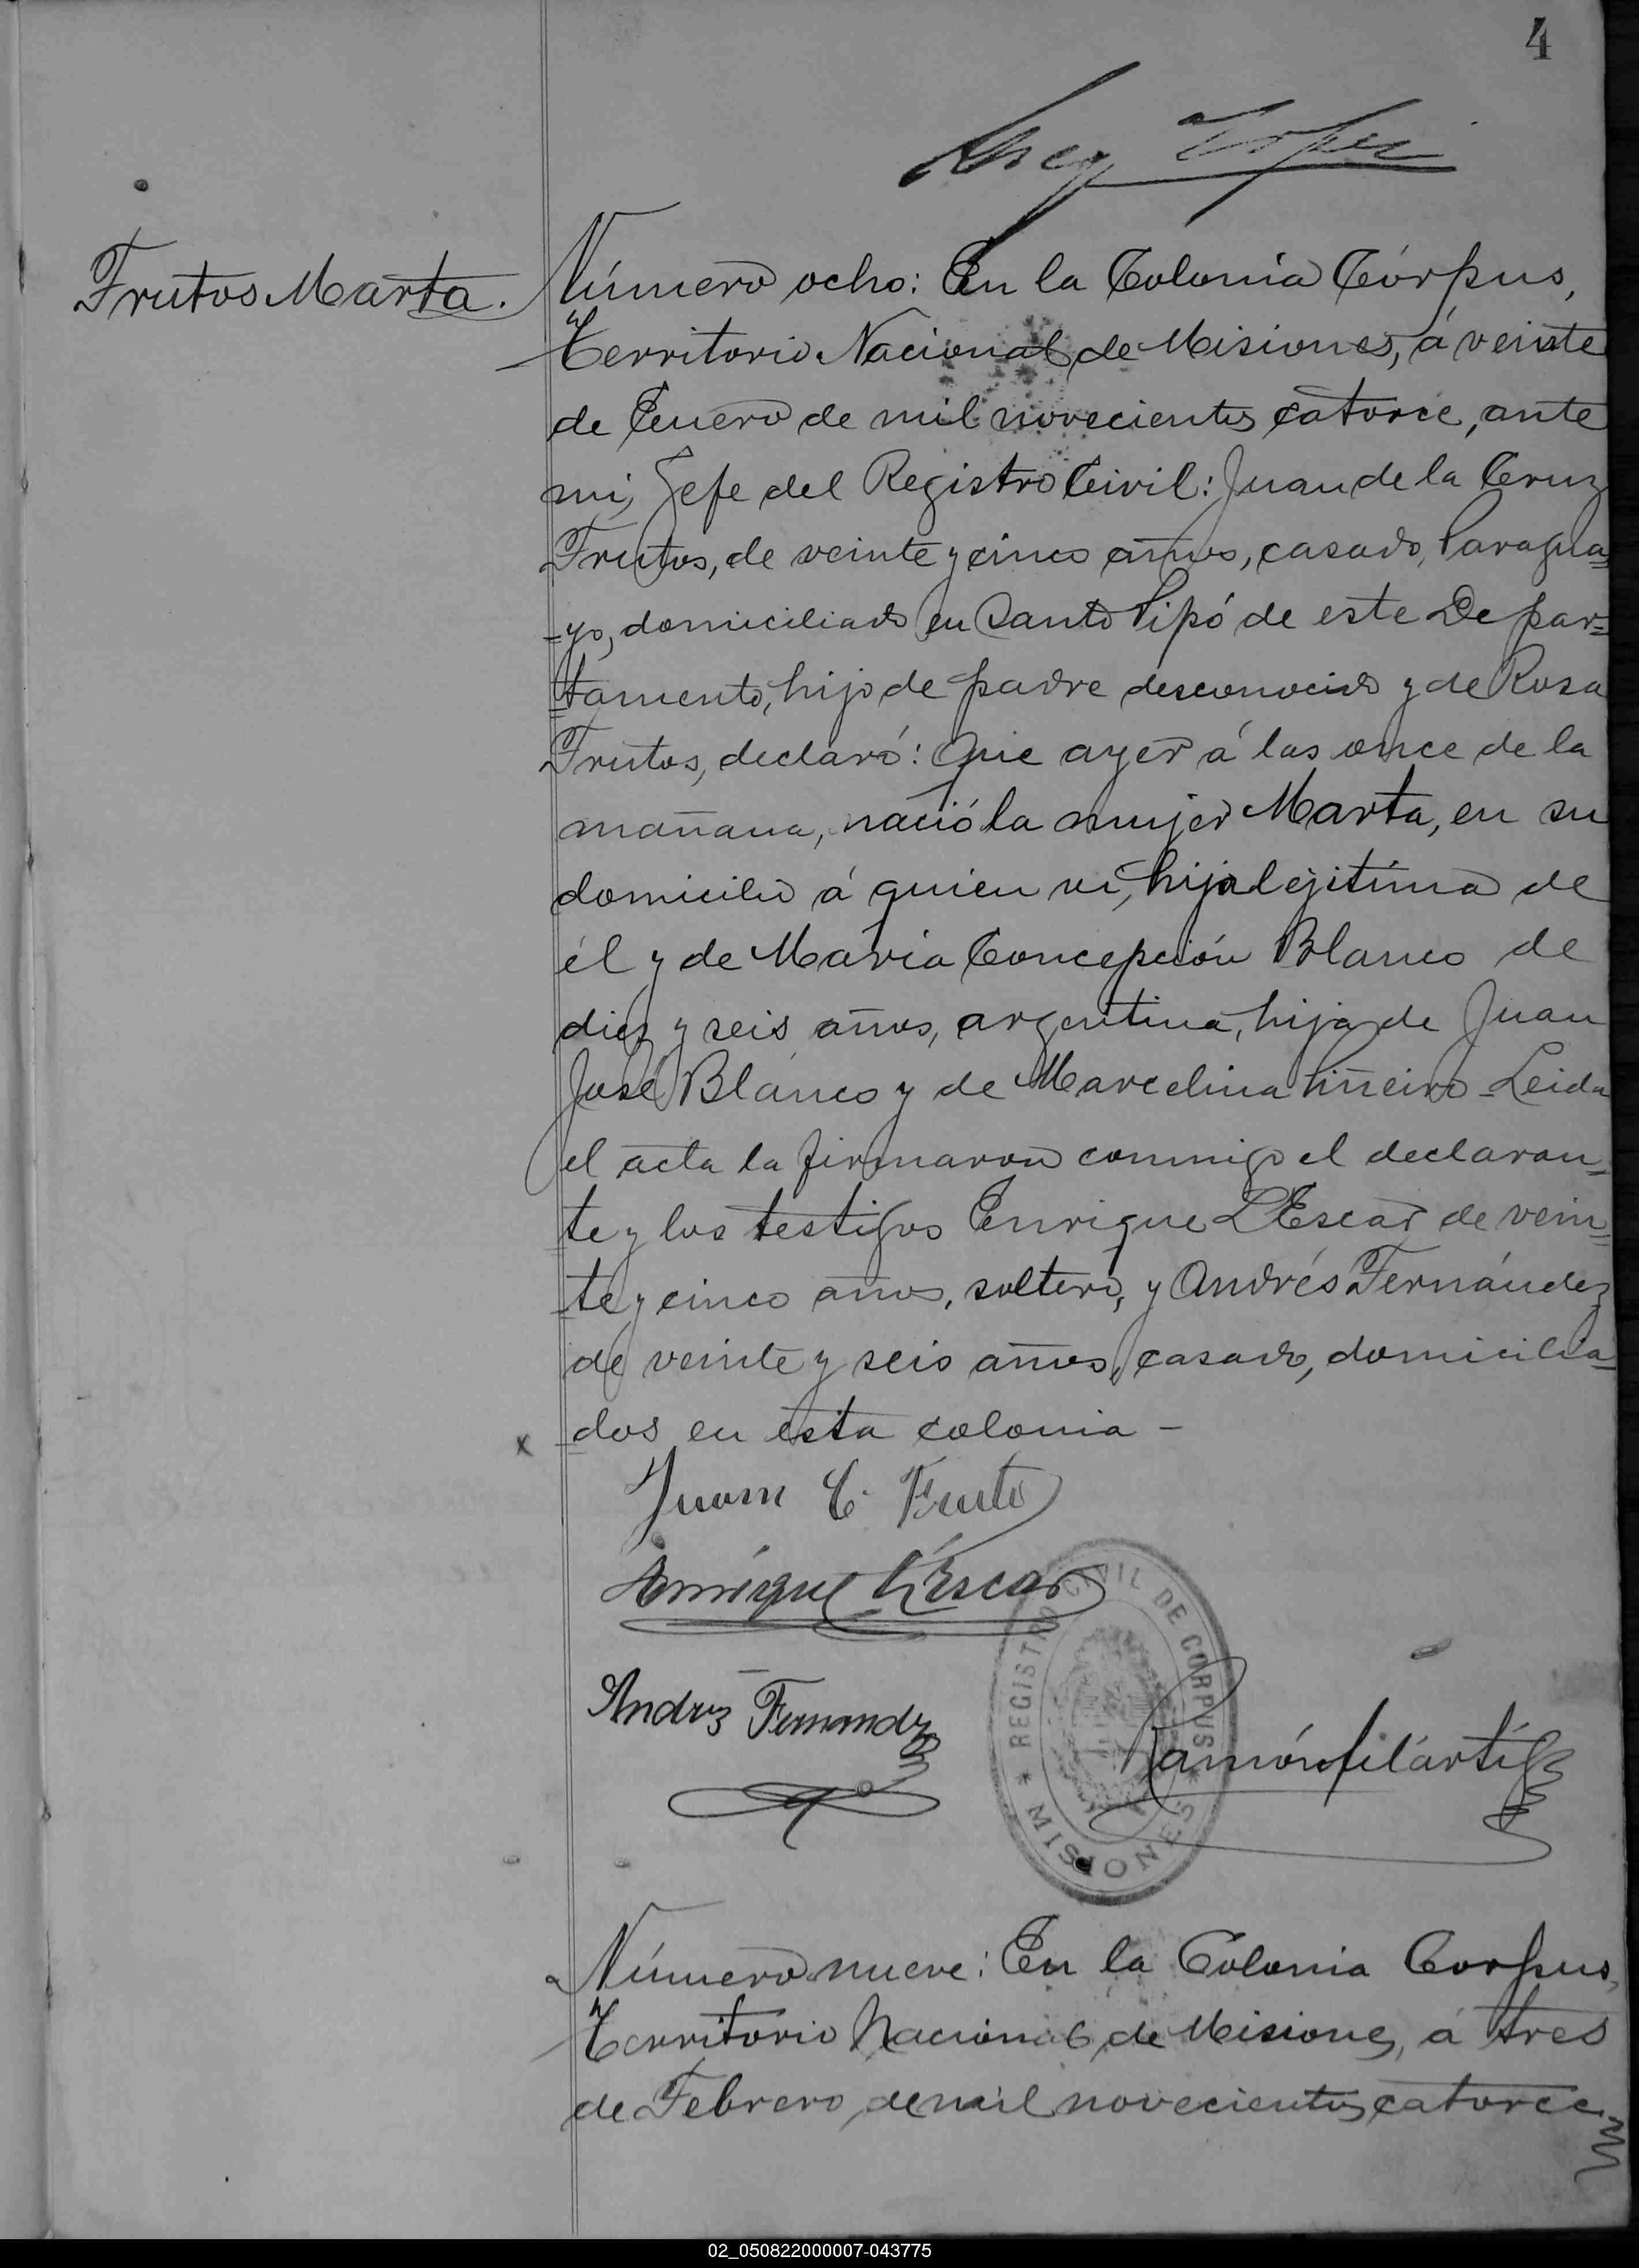 4
Frutos Marta.
Número ocho: En la Colonia Córpus,
Territorio Nacional de Misiones, á veinte
de Enero de mil novecientos catorce, ante
mi, Jefe del Registro Civil: Juan de la Cruz
Frutos, de veinte y cinco años, casado, Paragua=
=yo, domiciliado en Santo Pipó de este Depar=
=tamento, hijo de padre desconocido y de Rosa
Frutos, declaró: Que ayer á las once de la
mañana, nació la mujer Marta, en su
domicilio á quien vi, hija lejítima de
él y de María Concepción Blanco de
diez y seis años, argentina, hija de Juan
José Blanco y de Marcelina Piñeiro - Leida
el acta la firmaron conmigo el declaran=
te y los testigos Enrique L'Escar de vein=
=te y cinco años, soltero, y Andrés Fernández
de veinte y seis años, casado, domicilia=
=dos en esta colonia -
x
Juan C. Fruto
Enrique L'Escar
REGISTRO CIVIL DE CORPUS * MISIONES *
Andrez Fernandz
Ramón Filártiga
Número nueve: En la Colonia Corpus,
Territorio Nacional de Misiones, á tres
de Febrero de mil novecientos catorce
02_050822000007-043775